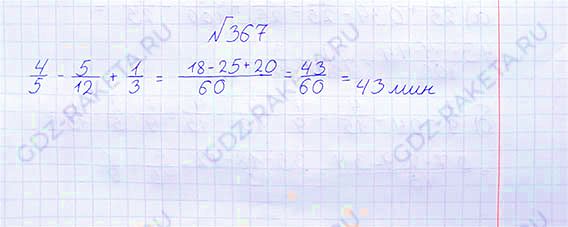 №367
4/5 - 5/12 + 1/3 = 18-25+20/60 = 43/60 = 43 мин
GDZ-RAKETA.RU
GDZ-RAKETA.RU
GDZ-RAKETA.RU
GDZ-RAKETA.RU